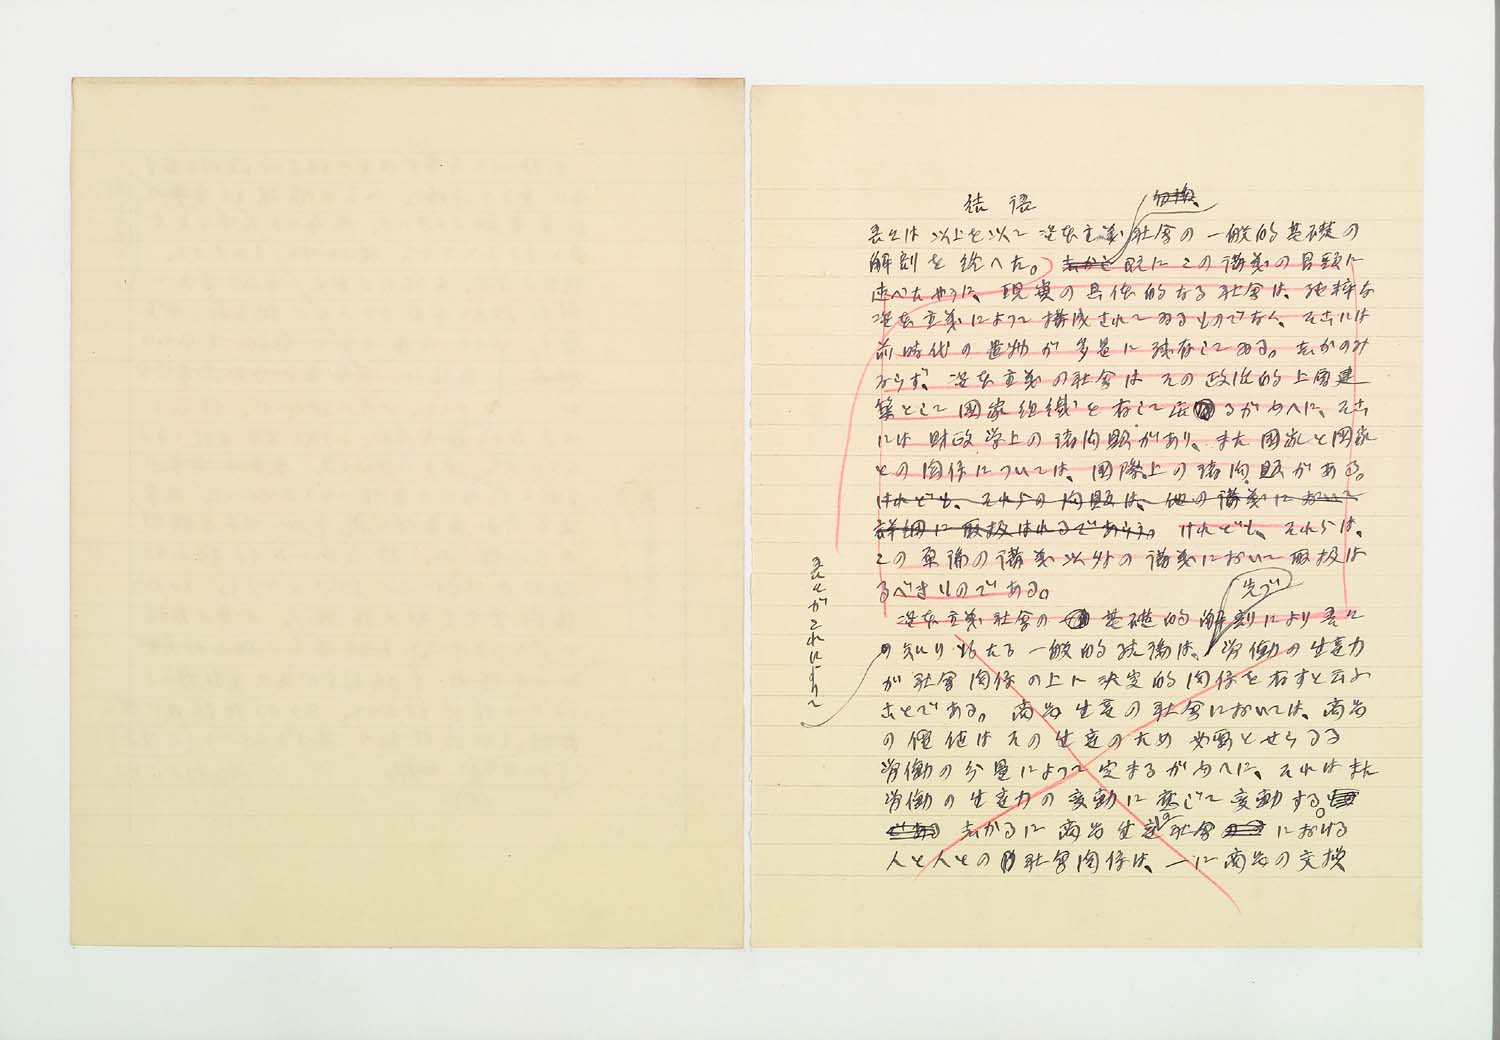 結語
吾々は以上を以て資本主義社会の一般的基礎の
解剖を終へた。既にこの講義の冒頭に
述べたやうに、現実の具体的なる社会は、純粋な
資本主義によつて構成されてゐるものでなく、そこには
前時代の遺物が多量に残存してゐる。志かのみ
ならず、資本主義の社会はその政治的上層建
築として国家組織を有して居るがゆへに、そこ
には財政学上の諸問題があり、また国家と国家
との関係については、国際上の諸問題がある。
けれども、それらの問題は、他の講義において
詳細に取扱はれるであらう。けれども、それらは、
この原論の講義以外の講義において取扱は
るべきものである。
先づ
資本主義社会の基礎的解剖により吾々
の知り得たる一般的結論は、労働の生産力
が社会関係の上に決定的関係を有すと云ふ
ことである。商品生産の社会においては、商品
の価値はその生産のため必要とせらるる
労働の分量によつて定まるがゆへに、それはまた
労働の生産力の変動に応じて変動する。
志かるに商品生産の社会における
人と人との社会関係は、一に商品の交換
吾々がこれによつて